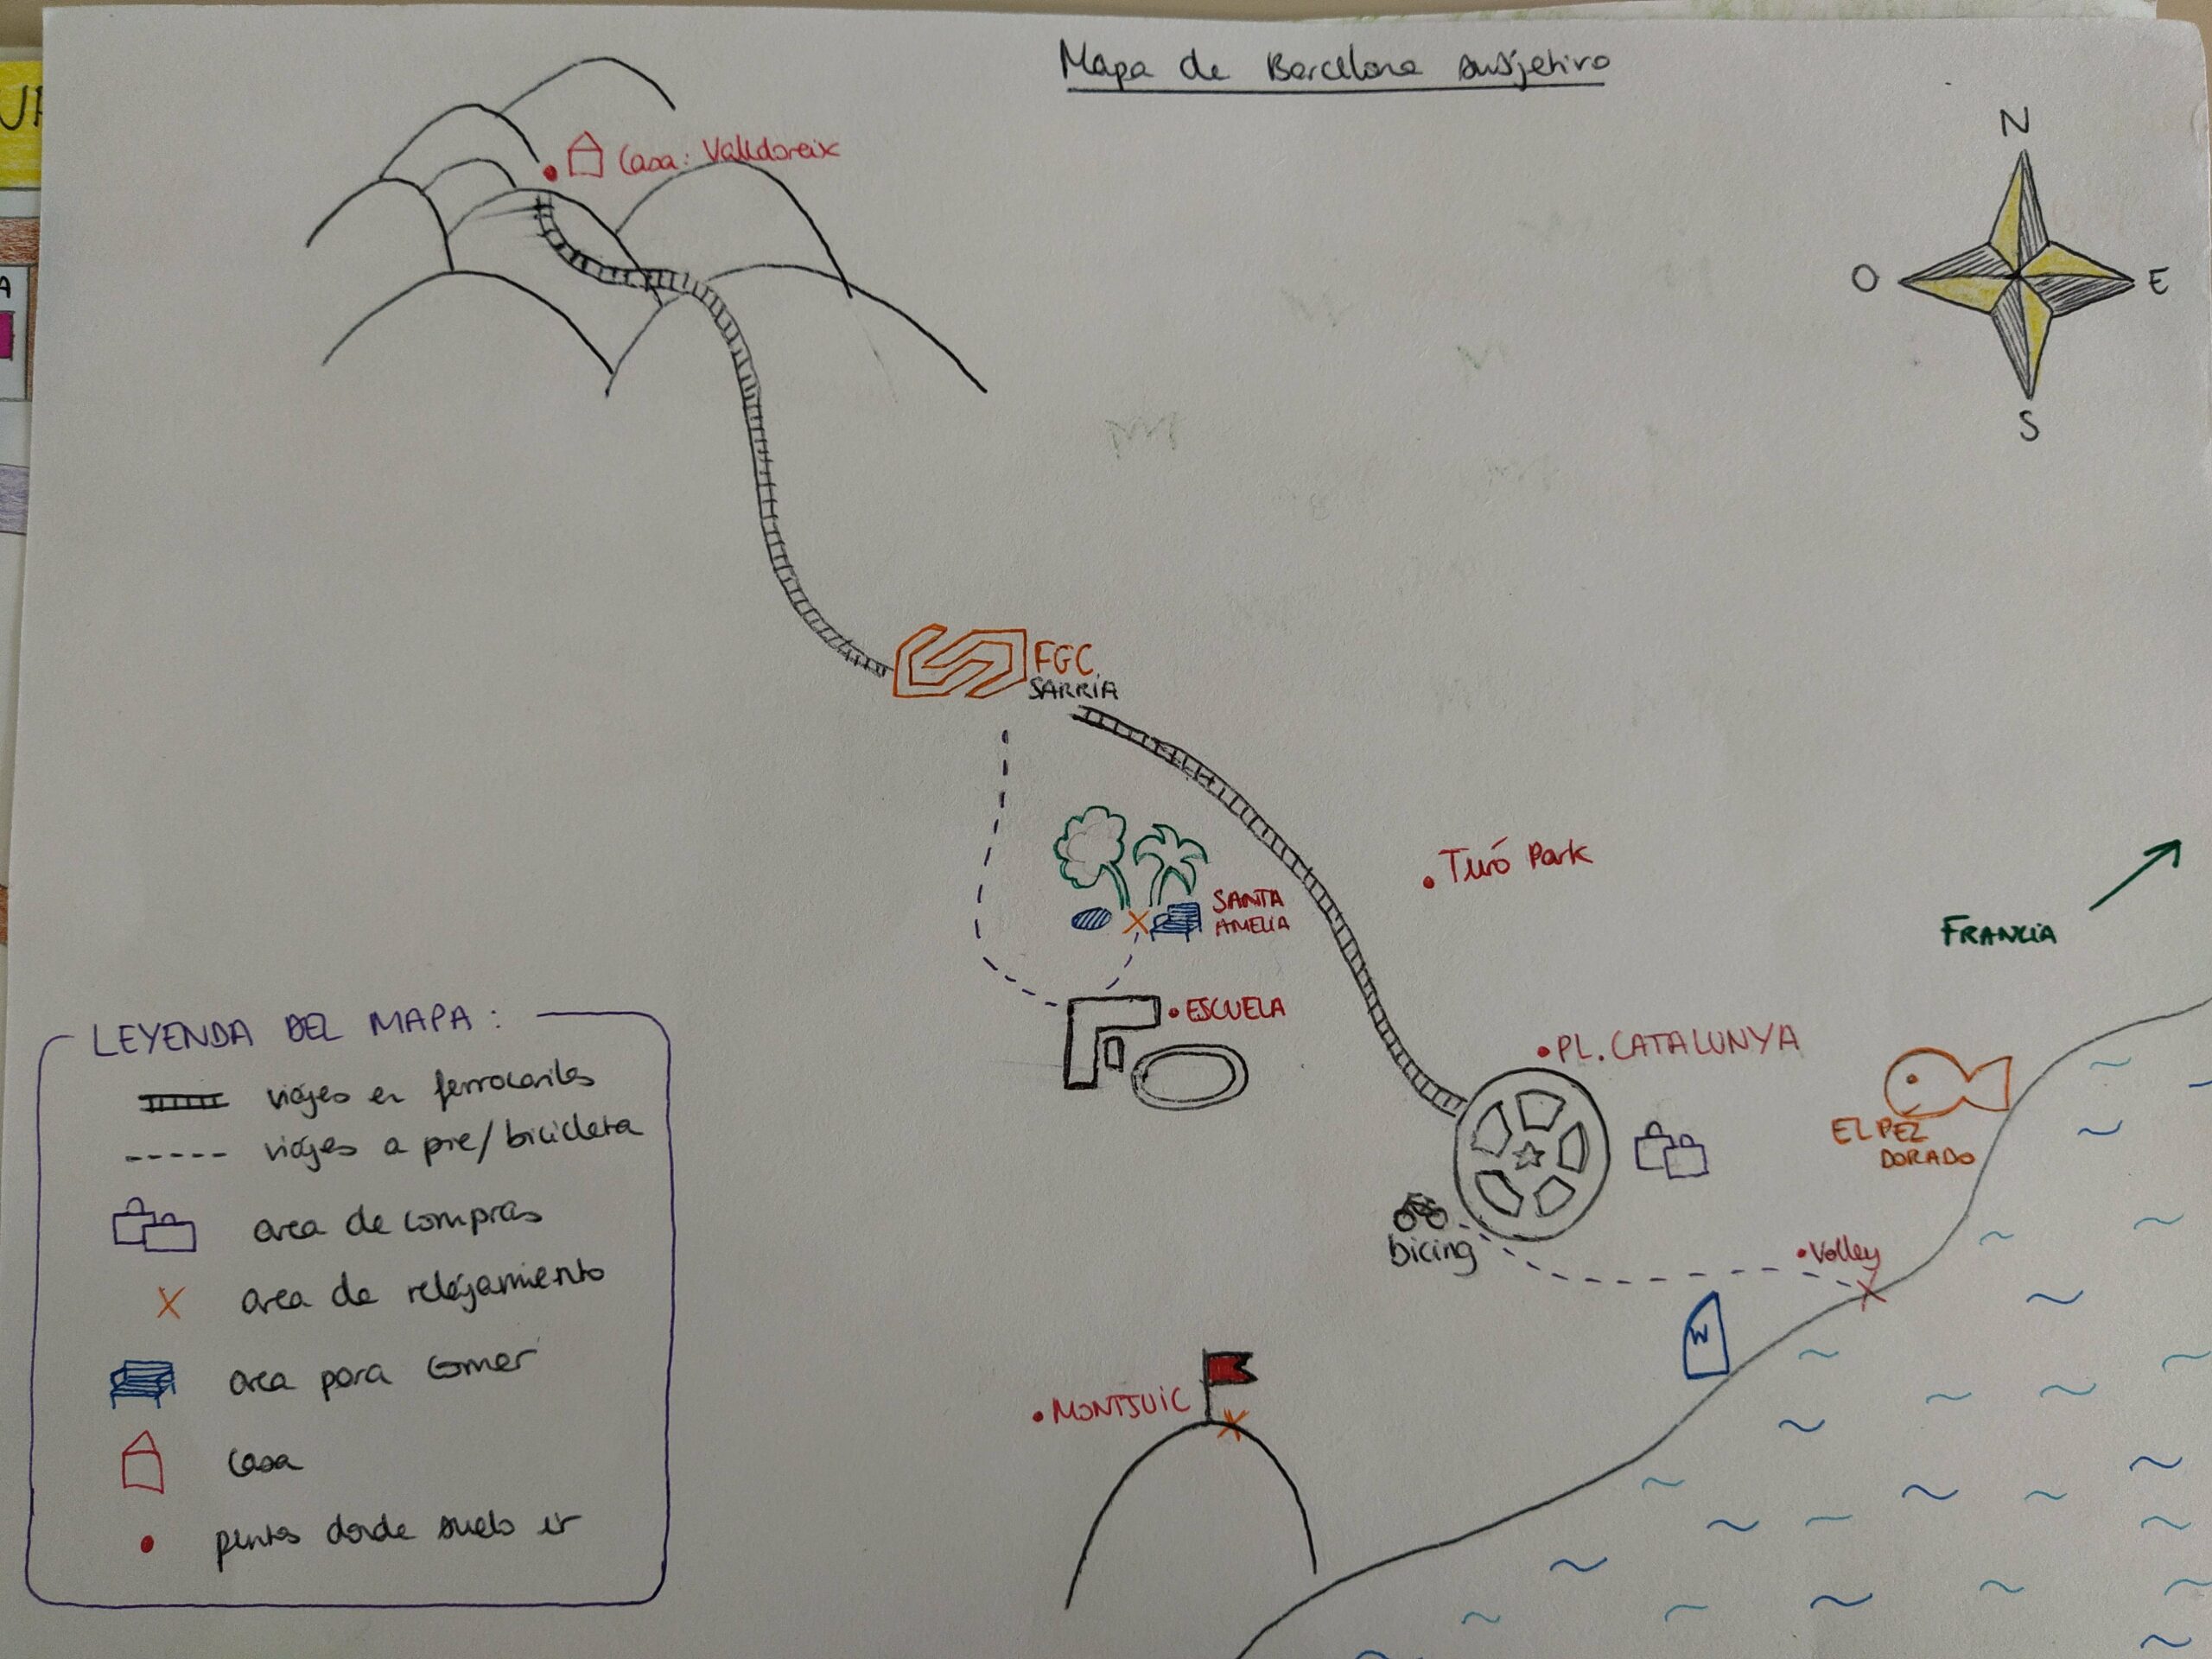 Mapa de Barcelona subjetivo
N
O
E
S
Casa: Valldoreix
FGC
SARRÍA
Turó Park
SANTA
AMELIA
FRANCIA
ESCUELA
PL. CATALUNYA
EL PEZ
DORADO
bicing
Volley
W
MONTJUIC
LEYENDA DEL MAPA:
viajes en ferrocariles
viajes a pie/bicicleta
area de compras
area de relajamiento
area para comer
casa
puntos donde suelo ir